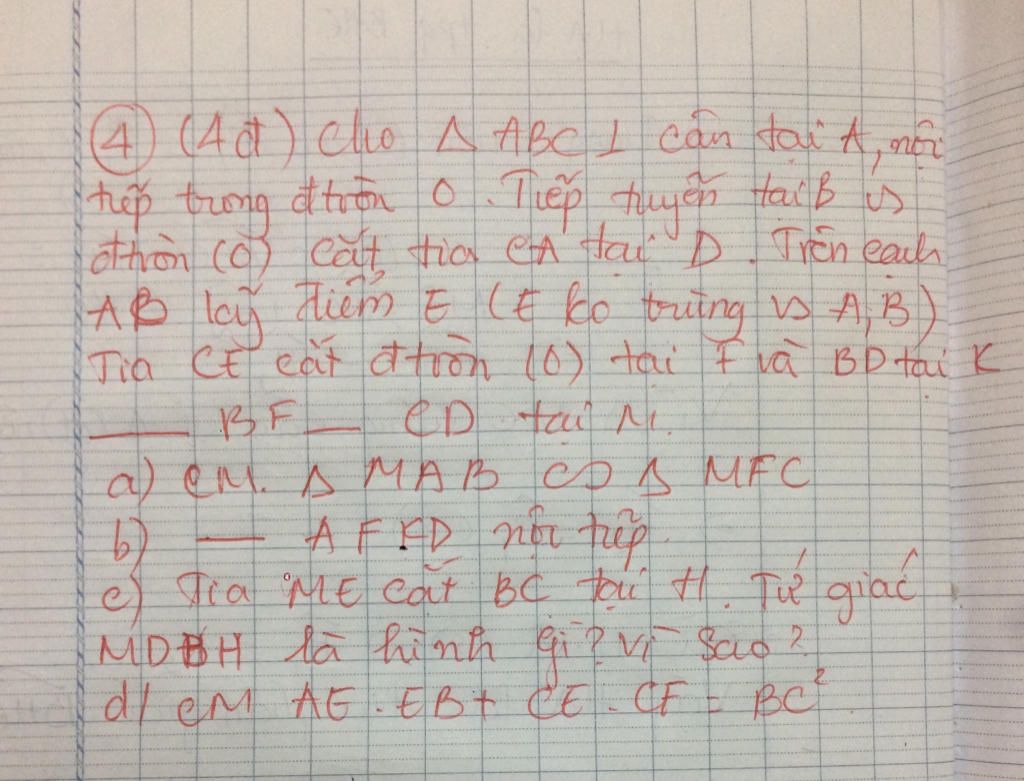 ④ (4đ) Cho Δ ABC ⊥ cân tại A, nội
tiếp trong đtròn O. Tiếp tuyến tại B vs
đtròn (O) cắt tia CA tại D. Trên cạnh
AB lấy điểm E (E ko trùng vs A, B)
Tia CE cắt đtròn (O) tại F và BD tại K
___ BF __ CD tại M.
a) CM. Δ MAB ∽ Δ MFC
b) — AFKD nội tiếp.
c) Tia ME cắt BC tại H. Tứ giác
MDBH là hình gì? Vì sao?
d/ CM AE . EB + CE . CF = BC²